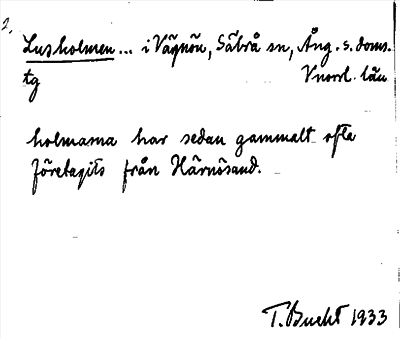 2.
Lusholmen... i Vägnön, Säbrå sn, Ång. s. doms.
tg Vnorrl. län
holmarna har sedan gammalt ofta
företagits från Härnösand.
T. Bucht 1933